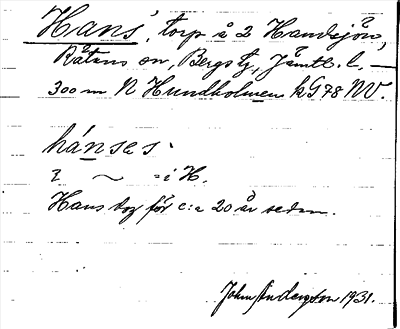 Hans', torp å 2 Handsjön,
Rätans sn, Bergs tg, Jämtl. l. —
300 m N Hundholmen kG78 NV.
hánses.
i ~ = i H.
Hans dog för c:a 20 år sedan.
John Anderzton 1931.